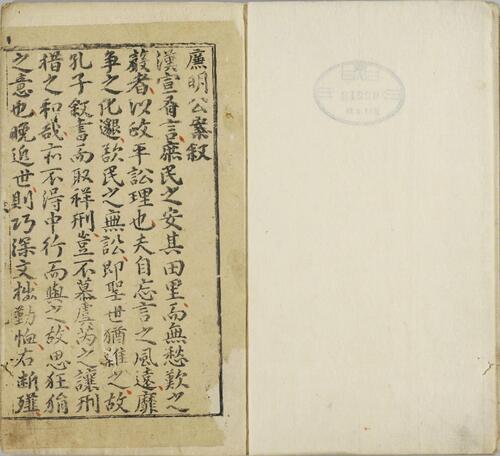 廉明公案叙
漢宣有言庶民之安其田里而無愁歎之
聲者以政平訟理也夫自忘言之風遠靡
争之化邈欲民之無訟即聖世猶難之故
孔子叙書而取祥刑豈不慕虞芮之讓刑
措之和哉亦不得中行而與之故思狂狷
之意也晚近世則巧深文拙勤恤右斷獄